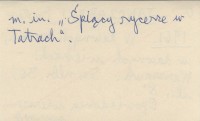 m. in. „Śpiący rycerze w
Tatrach”.